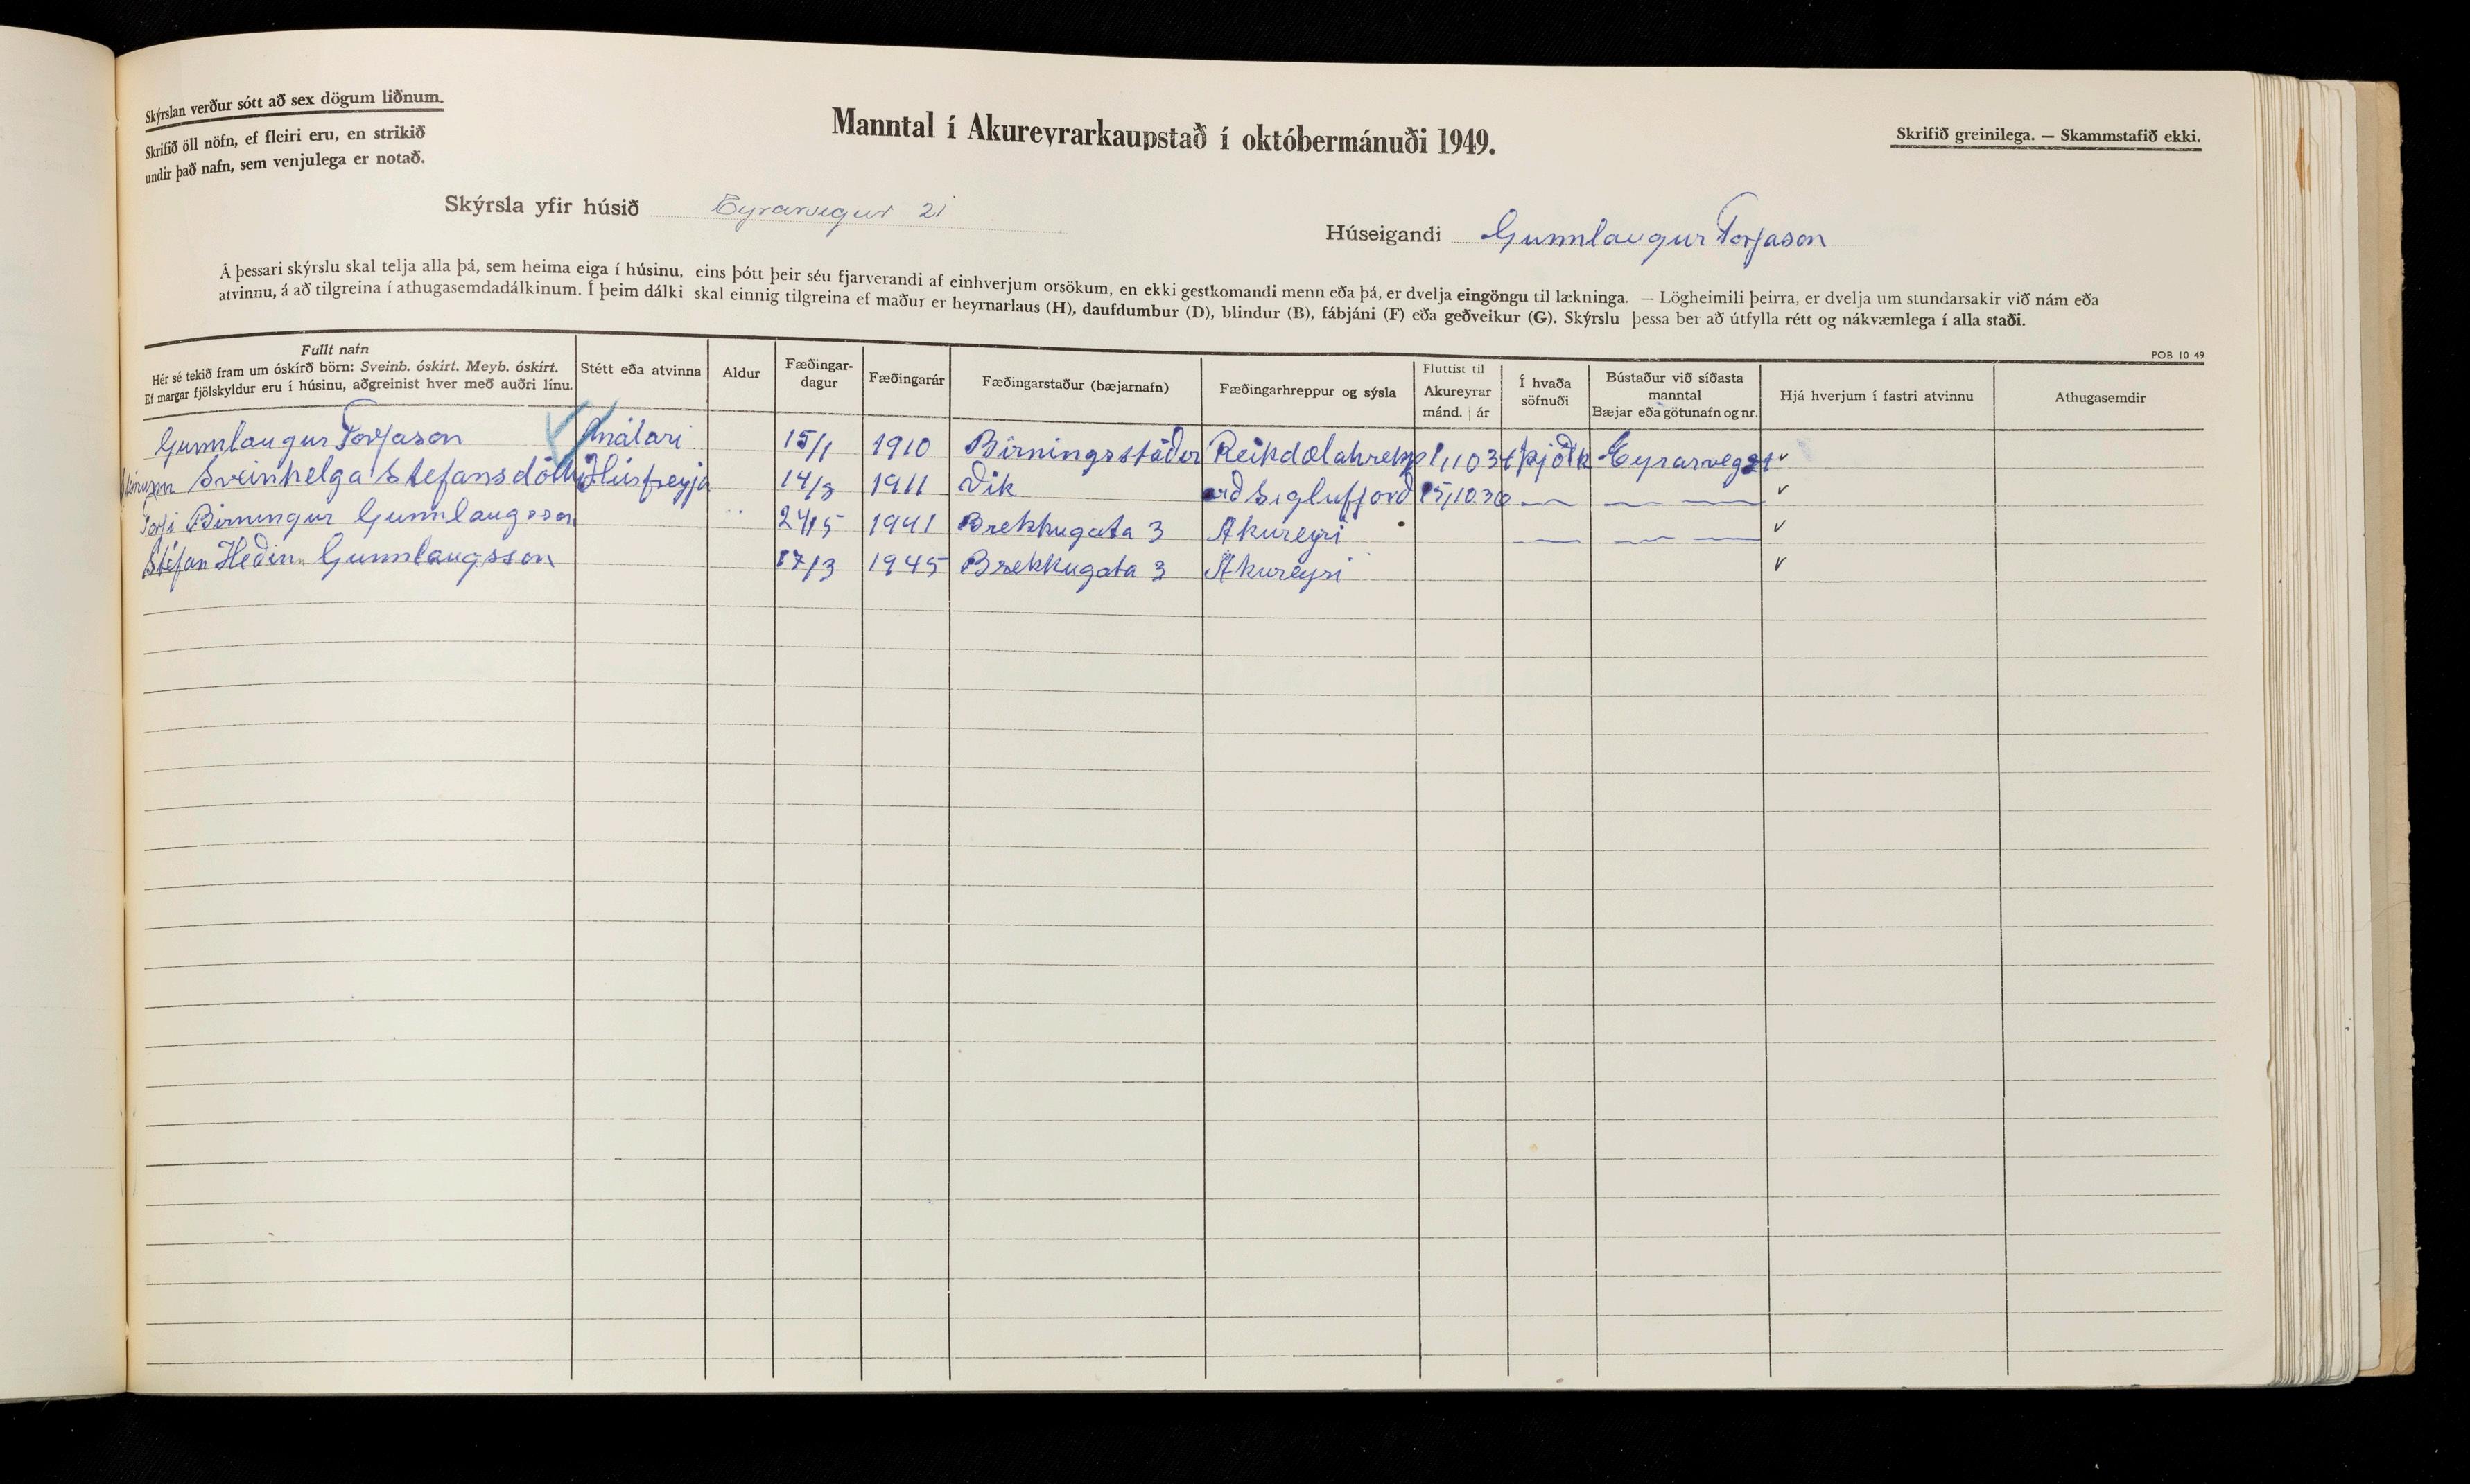 Skýrslan verður sótt að sex dögum liðnum.
Skrifið öll nöfn, ef fleiri eru, en strikið
undir það nafn, sem venjulega er notað.
Manntal í Akureyrarkaupstað í októbermánuði 1949.
Skrifið greinilega. — Skammstafið ekki.
Skýrsla yfir húsið Eyrarvegur 21
Húseigandi Gunnlaugur Torfason
Á þessari skýrslu skal telja alla þá, sem heima eiga í húsinu, eins þótt þeir séu fjarverandi af einhverjum orsökum, en ekki gestkomandi menn eða þá, er dvelja eingöngu til lækninga. — Lögheimili þeirra, er dvelja um stundarsakir við nám eða
atvinnu, á að tilgreina í athugasemdadálkinum. Í þeim dálki skal einnig tilgreina ef maður er heyrnarlaus (H), daufdumbur (D), blindur (B), fábjáni (F) eða geðveikur (G). Skýrslu þessa ber að útfylla rétt og nákvæmlega í alla staði.
POB 10 49
Fullt nafn
Hér sé tekið fram um óskírð börn: Sveinb. óskírt. Meyb. óskírt.
Ef margar fjölskyldur eru í húsinu, aðgreinist hver með auðri línu.
Stétt eða atvinna
Aldur
Fæðingar-
dagur
Fæðingarár
Fæðingarstaður (bæjarnafn)
Fæðingarhreppur og sýsla
Fluttist til
Akureyrar
mánd. ár
Í hvaða
söfnuði
Bústaður við síðasta
manntal
Bæjar eða götunafn og nr.
Hjá hverjum í fastri atvinnu
Athugasemdir
Gunnlaugur Torfason málari 15/1 1910 Birningsstaðir Reikdælahrepp 1/10 34 þjóðk Eyrarveg 21 v
Sveinhelga Stefansdóttir Húsfreyja 14/8 1911 Vik Siglufjord 15/10 30 — — — v
Torfi Birningur Gunnlaugsson 24/5 1941 Brekkugata 3 Akureyri — — — v
Stefan Heðinn Gunnlaugsson 17/3 1945 Brekkugata 3 Akureyri v